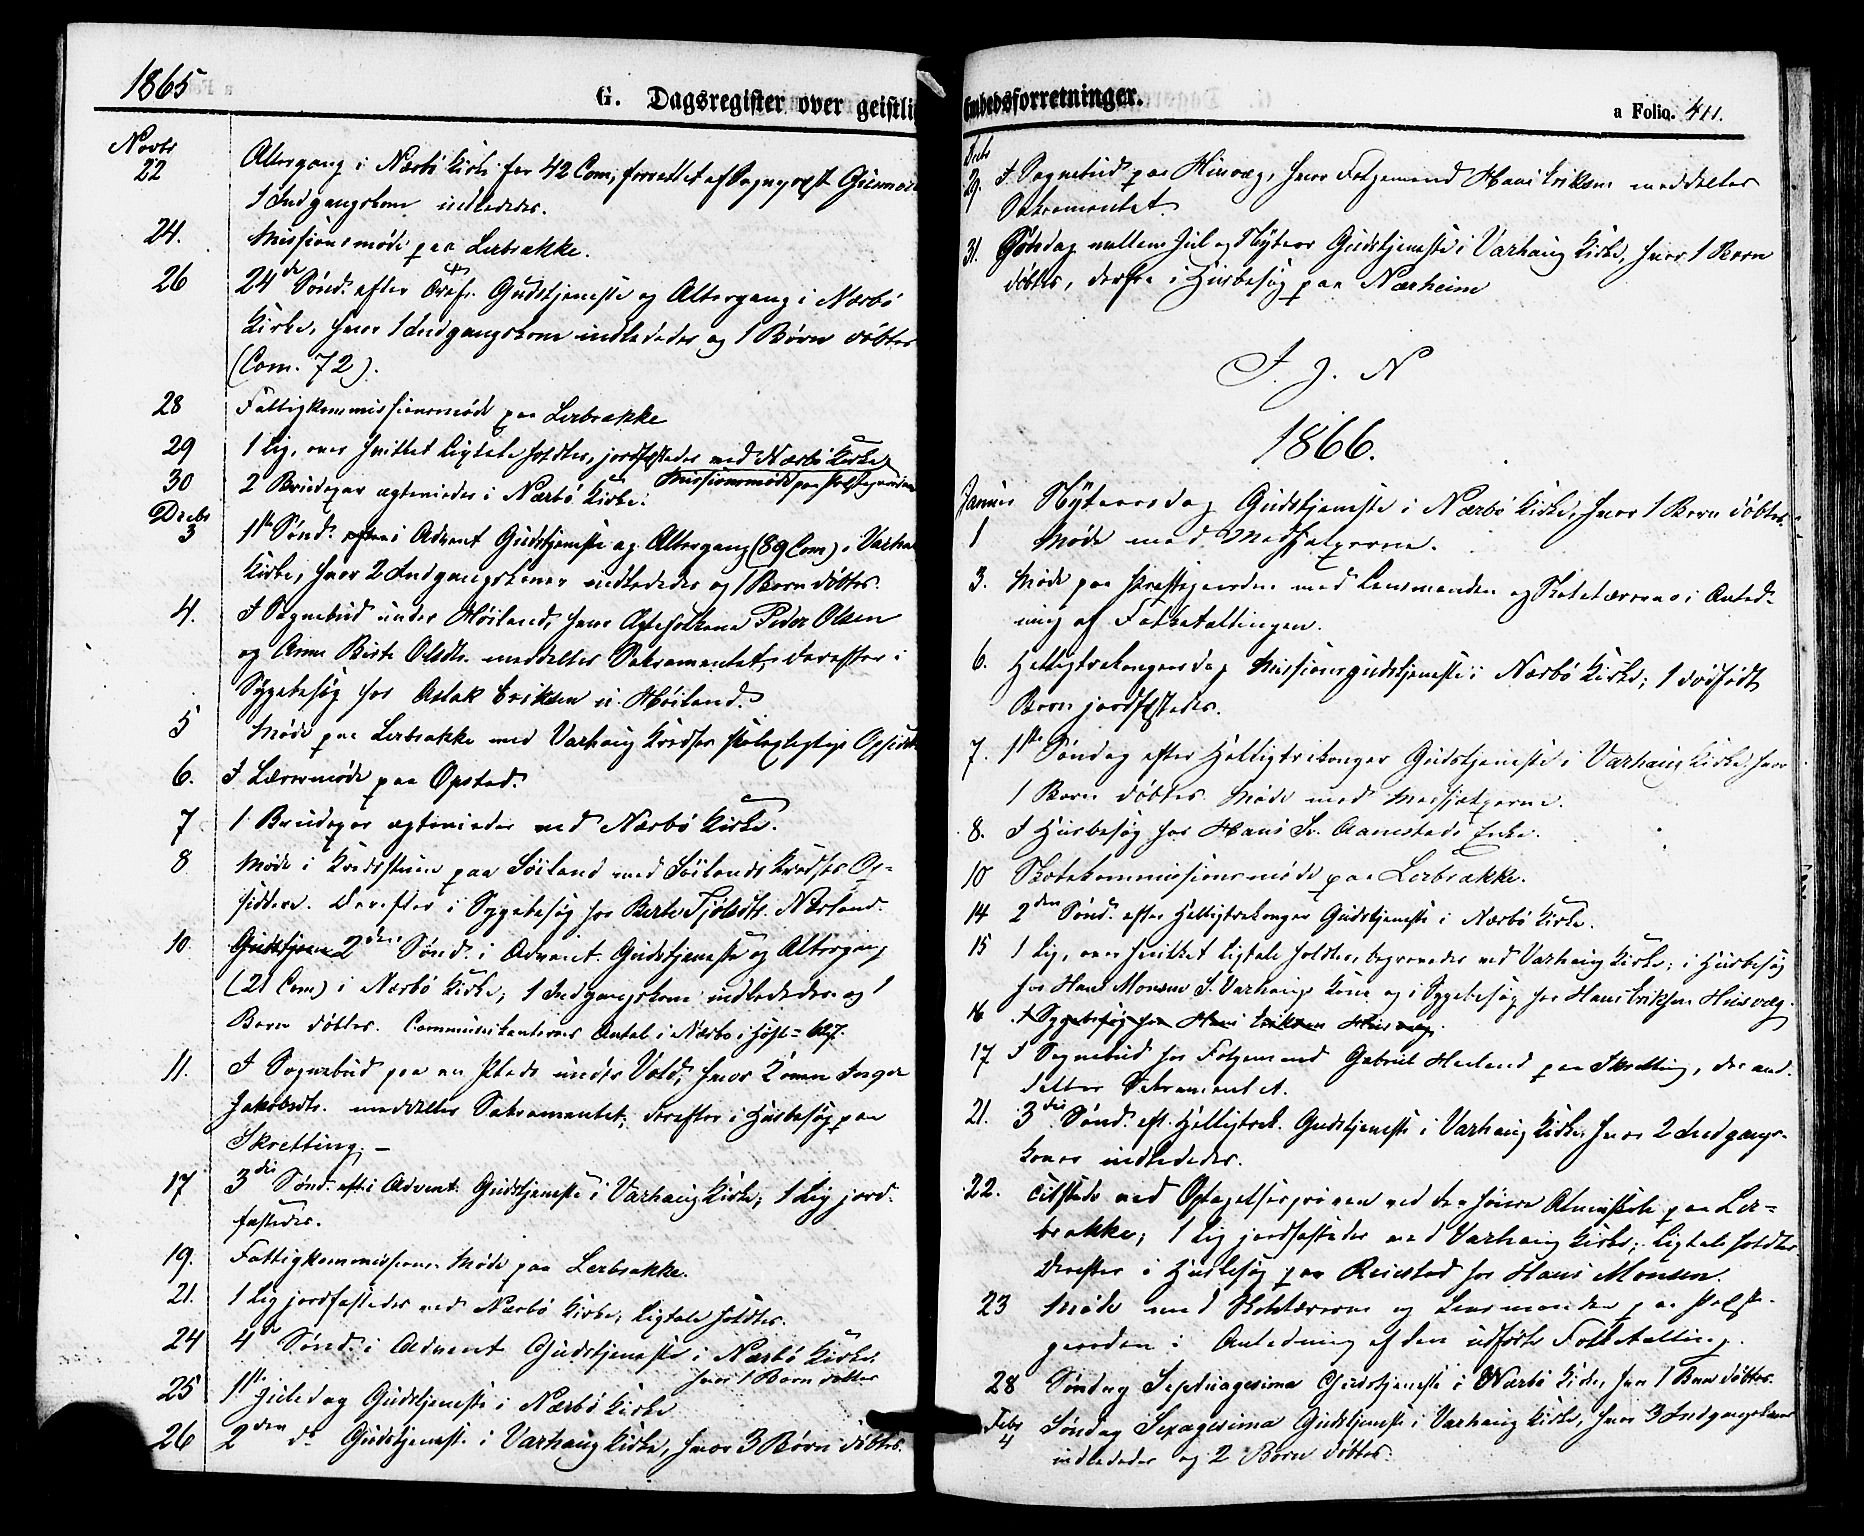 1865
G. Dagsregister over geistli
Novbr
22 Altergang i Nærbö Kirke for 42 Com, forrettet af Sogneprst
1 Indgangskone indlededes.
24. Missionsmöde paa Lerbrække.
26 24de Sönd. efter Trefr. Gudstjeneste og Altergang i Nærbö
Kirke, hvor 1 Indgangskone indlededes og 1 Børn döbtes
(Com. 72).
28 Fattigkommissionsmöde paa Lerbrække
29 1 Lig, over hvilket Ligtale holdtes, jordfæstedes ved Nærbö Kirke,
Missionsmöde paa
30 2 Brudepar ægteviedes i Nærbö Kirke.
Decbr
3 1ste Sönd. i Advent Gudstjeneste og Altergang (89 Com) i Varha
Kirke, hvor 2 Indgangskoner indlededes og 1 Barn döbtes.
4. I Sognebud under Höiland, hvor Ægtefolkene Peder Olsen
og Anne Berte Olsdtr. meddeltes Sakramentet, derefter i
Sygebesög hos Aslak Eriksen u. Höiland.
5 Möde paa Lerbrække med Varhaug Kredses
6. I Lærermöde paa Opstad.
7 1 Brudepar ægteviedes ved Nærbö Kirke.
8 Möde i Kredsstuen paa Söiland med Söilands Kredses Op-
siddere. Derefter i Sygebesög hos Berte Njölsdtr. Nærland.
10. Gudstjen 2den Sönd. i Advent. Gudstjeneste og Altergang
(21 Com) i Nærbö Kirke; 1 Indgangskone indlededes og 1
Barn döbtes. Communikanternes Antal i Nærbö i Höst =
11. I Sognebud paa en Plads under Vold, hvor Konen Inger
Jakobsdtr. meddeltes Sakramentet; derefter i Husbesög paa
Skretting. –
17 3die Sönd. i Advent. Gudstjeneste i Varhaug Kirke; 1 Lig jord-
fæstedes.
19. Fattigkommissions Möde paa Lerbrække.
21. 1 Lig jordfæstedes ved Nærbö Kirke, Ligtale holdtes.
24 4de Sönd. i Advent Gudstjeneste i Nærbö Kirke,
hvor 1 Barn döbtes
25 1ste Juledag Gudstjeneste i Nærbö Kirke
26 2den do Gudstjeneste i Varhaug Kirke, hvor 3 Börn döbtes.
Embedsforretninger.
a Folio. 411.
Decbr
29. I Sognebud paa Husvæg, hvor Folgemand Hans Eriksen meddeltes
Sakramentet.
31. Söndag mellem Jul og Nytaar Gudstjeneste i Varhaug Kirke, hvor 1 Barn
döbtes, derfra i Husbesög paa Nærheim
I. J. N
1866.
Januar
1 Nytaarsdag Gudstjeneste i Nærbö Kirke, hvor 1 Barn döbtes.
Möde med Medhjælperne.
3. Möde paa Prestegaarden med Lensmanden og Skolelærerne i Anled-
ning af Folketællingen.
6. Helligtrekongersdag Missionsgudstjeneste i Nærbö Kirke; 1 dödfödt
Barn jordfæstedes.
7. 1ste Söndag efter Helligtrekonger Gudstjeneste i Varhaug Kirke, hvor
1 Barn döbtes. Möde med Medhjælperne.
8. I Husbesög hos Hans Sv. Aanestads Enke.
10 Skolekommissionsmöde paa Lerbrække.
14 2den Sönd. efter Helligtrekonger Gudstjeneste i Nærbö Kirke.
15 1 Lig, over hvilket Ligtale holdtes, begravedes ved Varhaug Kirke; i Husbesög
hos Hans Monsen S. Varhaugs Kone og i Sygebesög hos Hans Eriksen Husvæg.
16 I Sygebesög hos Hans Eriksen Husvæg.
17 I Sognebud hos Folgemand Gabriel Herland paa Skretting, der med-
deltes Sakramentet.
21. 3die Sönd. eft. Helligtrek. Gudstjeneste i Varhaug Kirke, hvor 2 Indgangs-
koner indlededes.
22. Tilstede ved Optagelsesprøven ved den höiere Almueskole paa Ler-
brække; 1 Lig jordfæstedes ved Varhaug Kirke; Ligtale holdtes
derefter i Husbesög paa Reiestad hos Hans Monsen.
23 Möde med Skolelærerne og Lensmanden paa Præste-
gaarden i Anledning af den udförte Folketælling.
28 Söndag Septuagesima Gudstjeneste i Nærbö Kirke, hvor 1 Barn döbtes.
Febr
4 Söndag Sexagesima Gudstjeneste i Varhaug Kirke, hvor 3 Indgangskoner
indlededes og 2 Börn döbtes.